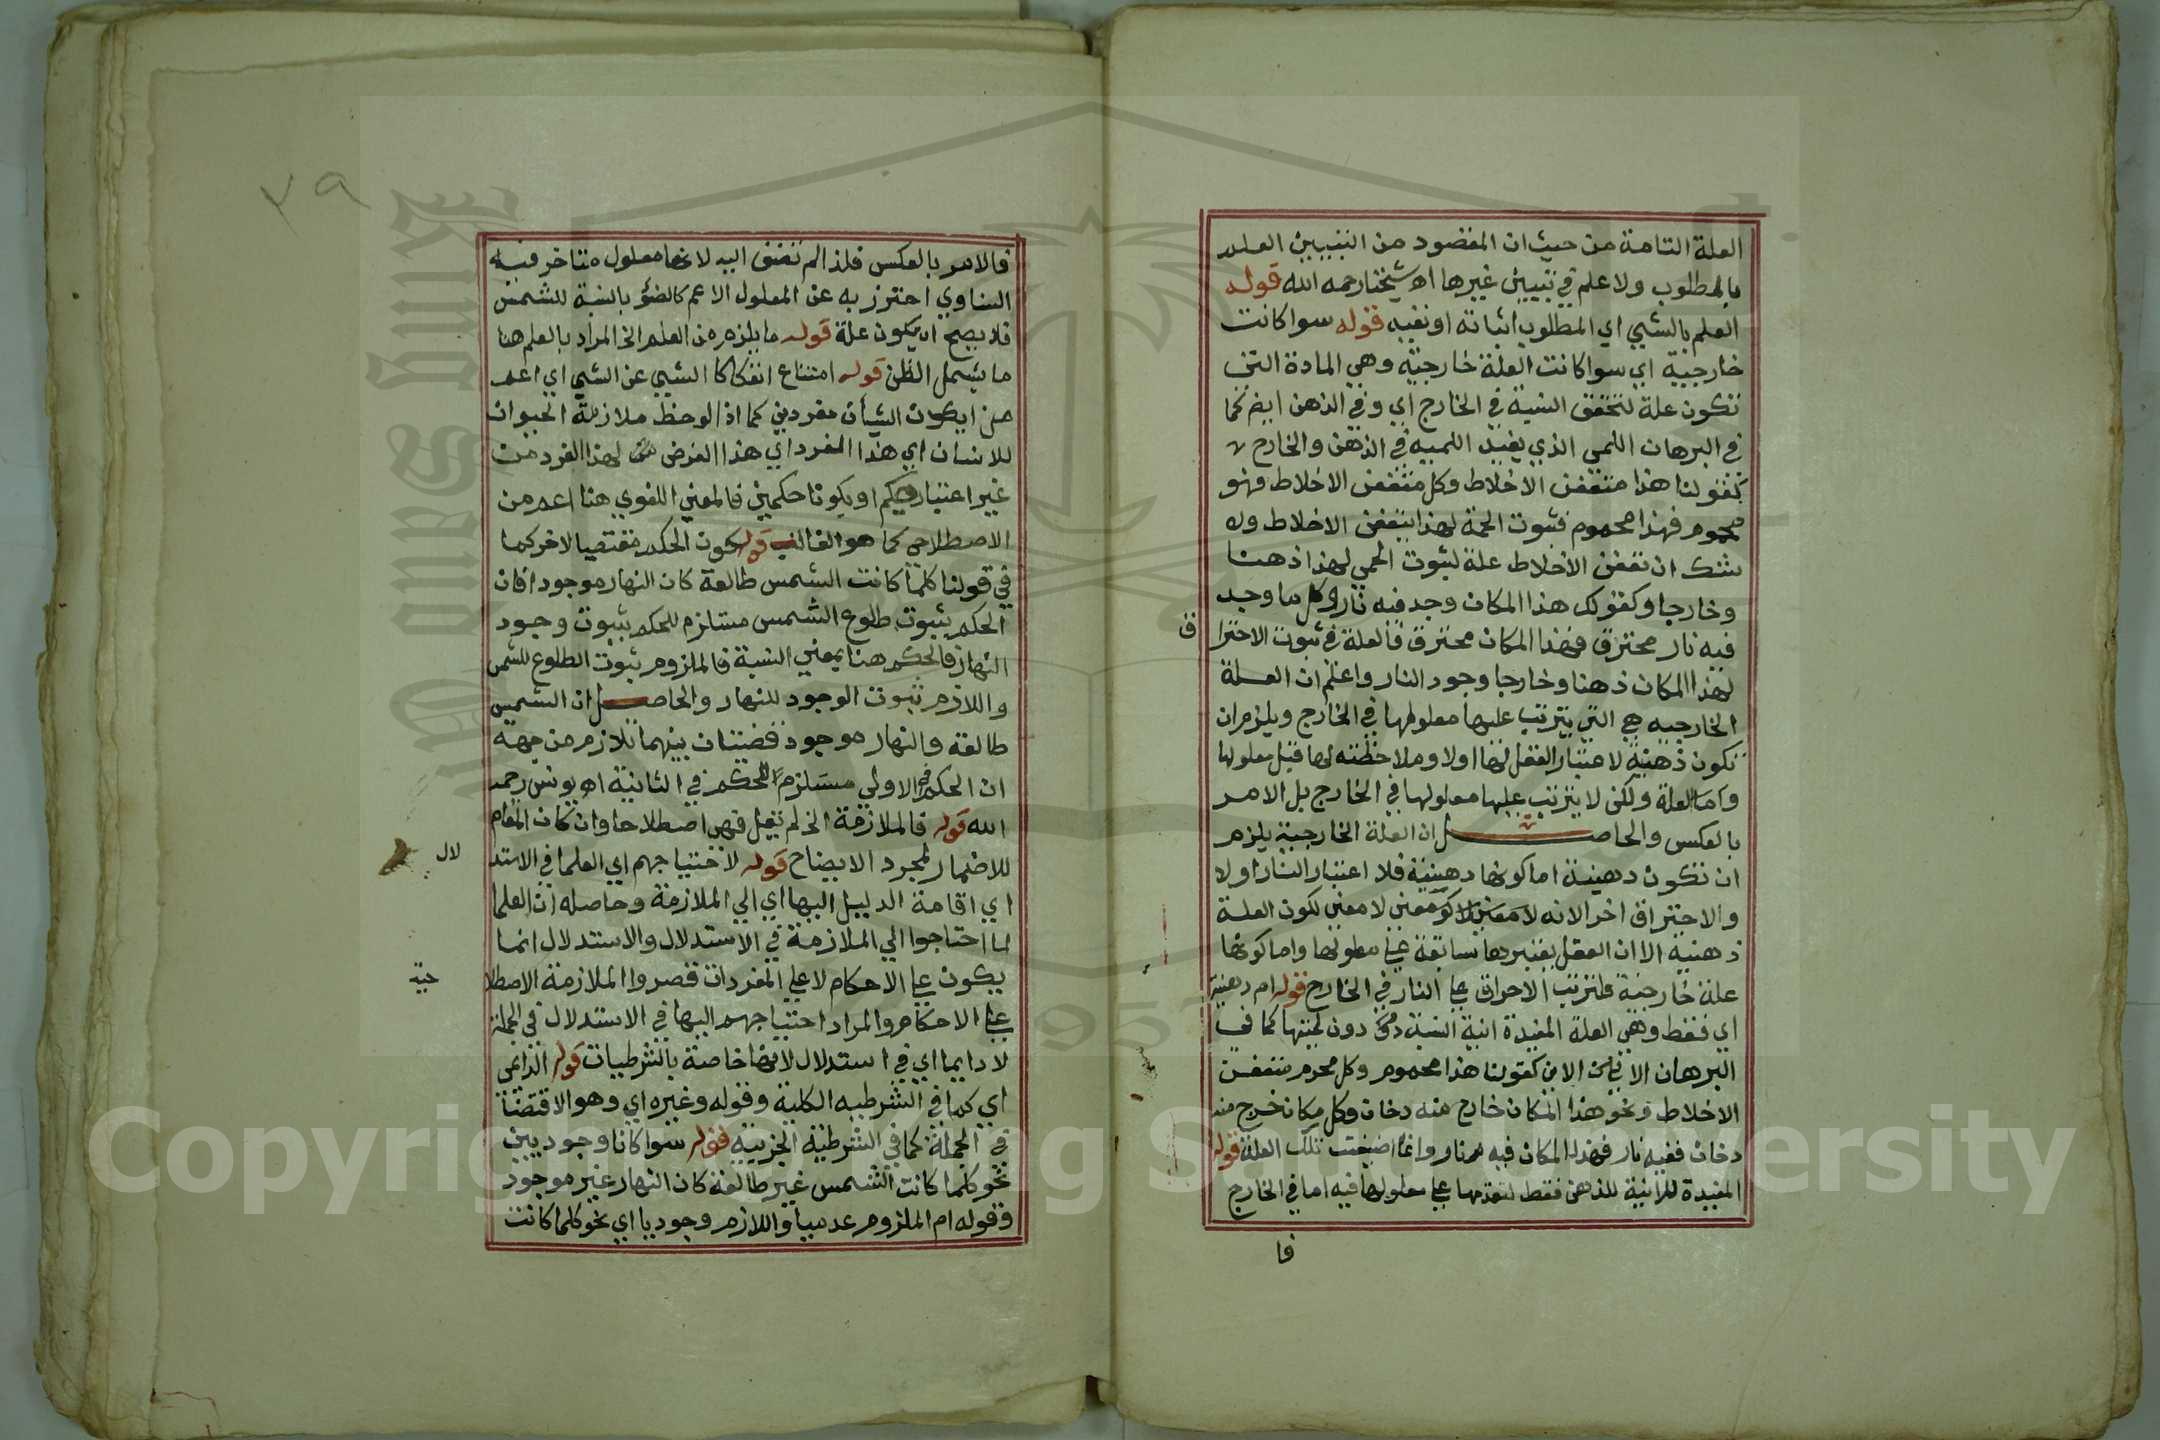 العلة التامة من حيث ان المقصود من التبيين العلم
بالمطلوب ولا علم في تبيين غيرها اه شيخنا رحمه الله قوله
العلم بالشيي اي المطلوب اثباته او نفيه قوله سوا كانت
خارجية اي سوا كانت العلة خارجية وهي المادة التي
تكون علة لتحقق النسبة في الخارج اي وفي الذهن ايضا كما
في البرهان اللمي الذي يفيد اللمية في الذهن والخارج
كقولنا هذا متعفن الاخلاط وكل متعفن الاخلاط فهو
محموم فهذا محموم فثبوت الحمة لهذا بتعفن الاخلاط ولا
شك ان تعفن الاخلاط علة لثبوت الحمي لهذا ذهنا
وخارجا وكقولك هذا المكان وجد فيه نار وكل ما وجد
فيه نار محترق فهذا المكان محترق فالعلة في ثبوت الاحترا
ق
لهذا المكان ذهنا وخارجا وجود النار واعلم ان العلة
الخارجيه هي التي يترتب عليها معلولها في الخارج ويلزم ان
تكون ذهنية لاعتبار العقل لها اولا وملاحظته لها قبل معلولها
واما العلة ولكن لا يترتب عليها معلولها في الخارج بل الامر
بالعكس والحاصل ان العلة الخارجية يلزم
ان تكون ذهنية اما كونها ذهنية فلا اعتبار النار اولا
والاحتراق اخر الانه لا معنى لكون العلة
ذهنية الا ان العقل يعتبرها سابقة علي معلولها واما كونها
علة خارجية فلترتب الاحراق علي النار في الخارج قوله ام ذهنية
اي فقط وهي العلة المفيدة انية النسبة دون لميتها كما في
البرهان الاني الان كقولنا هذا محموم وكل محموم متعفن
الاخلاط ونحو هذا المكان خارج منه دخان وكل مكان خرج منه
دخان ففيه نار فهذا المكان فيه نار وانما اضيفت تلك العلة قوله
المفيدة للانية للذهن فقط لتقدمها علي معلولها فيه اما في الخارج
فا
٧٩
فالامر بالعكس فلذا لم تضف اليه لانها معلول متاخر فيه
المساوي احترز به عن المعلول الاعم كالضؤ بالنسبة للشمس
فلا يصح ان يكون علة قوله ما يلزم من العلم الخ المراد بالعلم هنا
ما يشمل الظن قوله امتناع انفكاك الشيي عن الشيي اي اعم
من ان يكون الشيأن مفردين كما اذا لوحظ ملازمة الحيوان
للانسان اي هذا المفرد اي هذا الفرض لهذا الفرد من
غير اعتبار حكم او يكونا حكمين فالمعني اللغوي هنا اعم من
الاصطلاحي كما هو الغالب قوله كون الحكم مقتضيا لاخر كما
في قولنا كلما كانت الشمس طالعة كان النهار موجودا فان
الحكم بثبوت طلوع الشمس مستلزم للحكم بثبوت وجود
النهار فالحكم هنا بمعني النسبة فالملزوم ثبوت الطلوع للشمس
واللازم ثبوت الوجود للنهار والحاصل ان الشمس
طالعة والنهار موجود قضيتان بينهما تلازم من جهة
ان الحكم في الاولي مستلزم للحكم في الثانية اه يونس رحمه
الله قوله فالملازمة الخ لم يقل فهي اصطلاحا وان كان المقام
للاضمار لمجرد الايضاح قوله لاحتياجهم اي العلما في الاستد
لال
اي اقامة الدليل اليها اي الي الملازمة وحاصله ان العلما
لما احتاجوا الي الملازمة في الاستدلال والاستدلال انما
يكون علي الاحكام لا علي المفردات قصروا الملازمة الاصطلا
حية
علي الاحكام والمراد احتياجهم اليها في الاستدلال في الجملة
لا دايما اي في استدلال لانها خاصة بالشرطيات قوله الدايمي
اي كما في الشرطيه الكلية وقوله وغيره اي وهو الاقتضا
في الجملة كما في الشرطية الجزيية قوله سوا كانا وجوديين
نحو كلما كانت الشمس غير طالعة كان النهار غير موجود
وقوله ام الملزوم عدميا واللازم وجوديا اي نحو كلما كانت
Copyright © King Saud University
King Saud University
1957